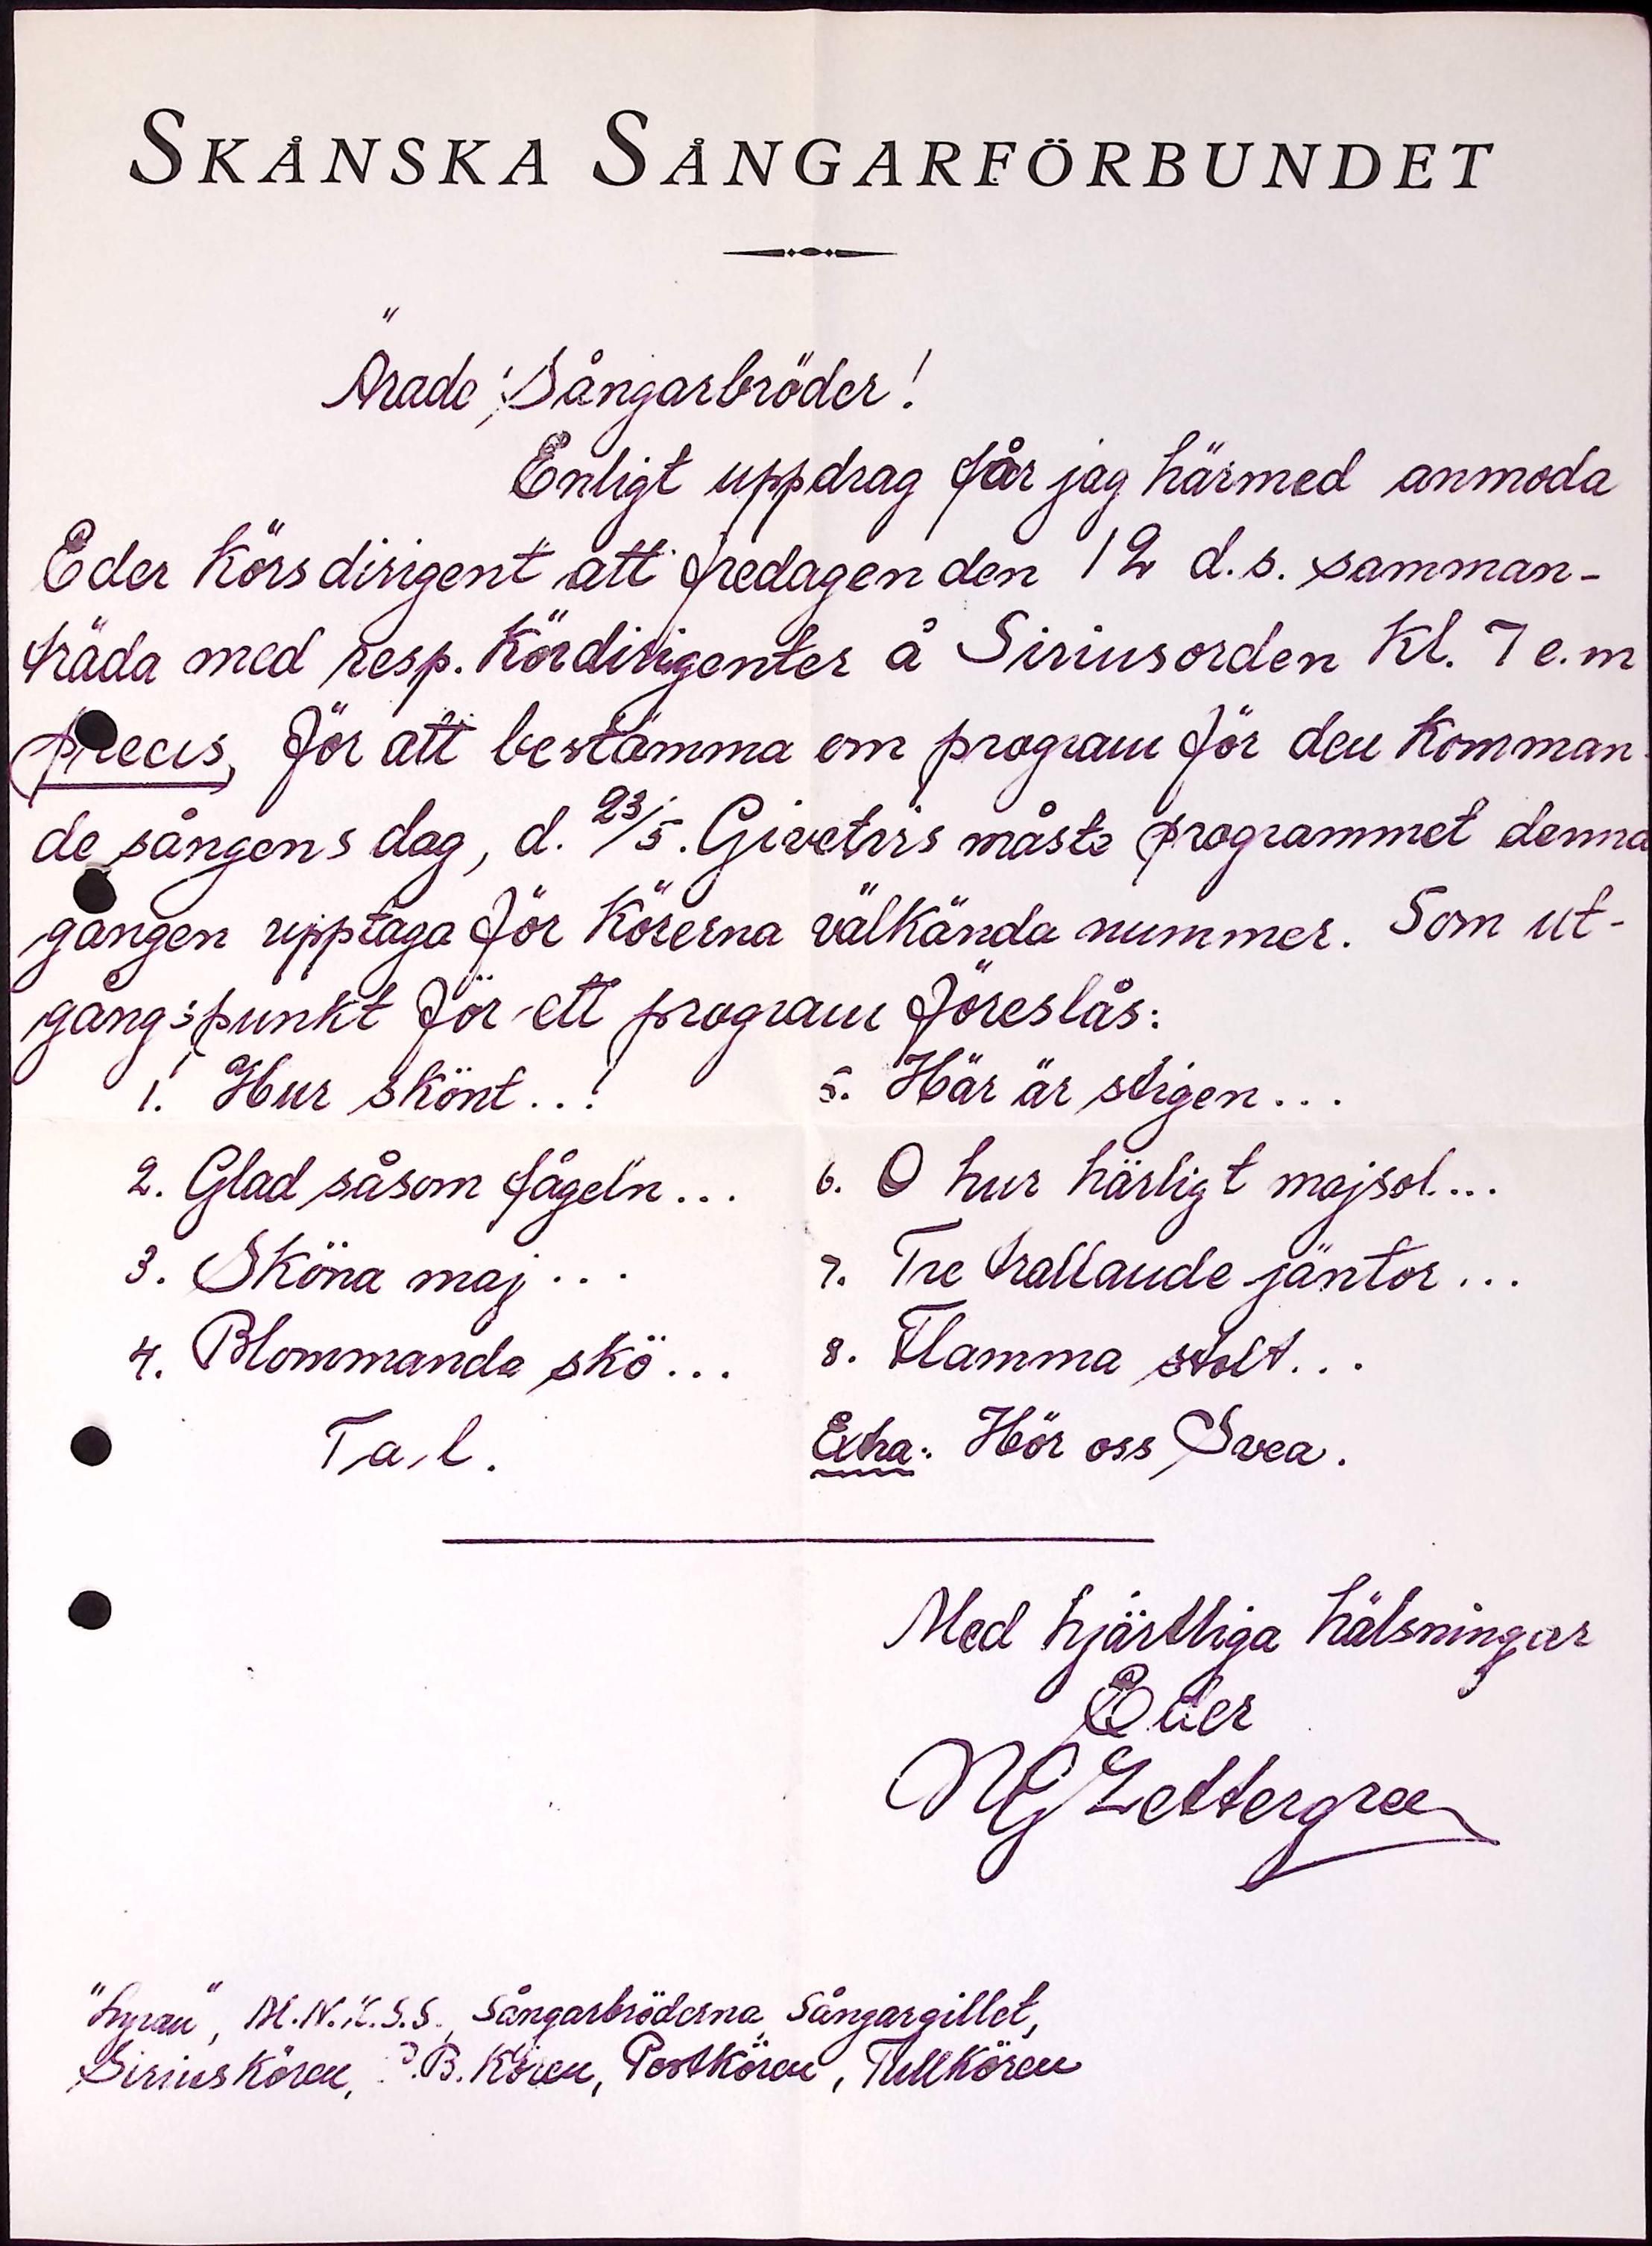 SKÅNSKA SÅNGARFÖRBUNDET
Ärade Sångarbröder!
Enligt uppdrag får jag härmed anmoda
Eder körsdirigent att fredagen den 12 d.s. samman-
träda med resp. kördirigenter å Siriusorden kl. 7 e.m
precis, för att bestämma om program för den komman-
de sångens dag, d. 23/5. Givetvis måste programmet denna
gången upptaga för körerna välkända nummer. Som ut-
gångspunkt för ett program föreslås:
1. Hur skönt...!
2. Glad såsom fågeln...
3. Sköna maj...
4. Blommande skö...
Tal.
5. Här är stigen...
6. O hur härligt majsol...
7. Tre trallande jäntor...
8. Flamma stolt...
Extra: Hör oss Svea.
Med hjärtliga hälsningar
Eder
NG Zettergren
"Lyran", M.N.K.S.S., Sångarbröderna, Sångargillet,
Siriuskören, B. Kören, Postkören, Tullkören